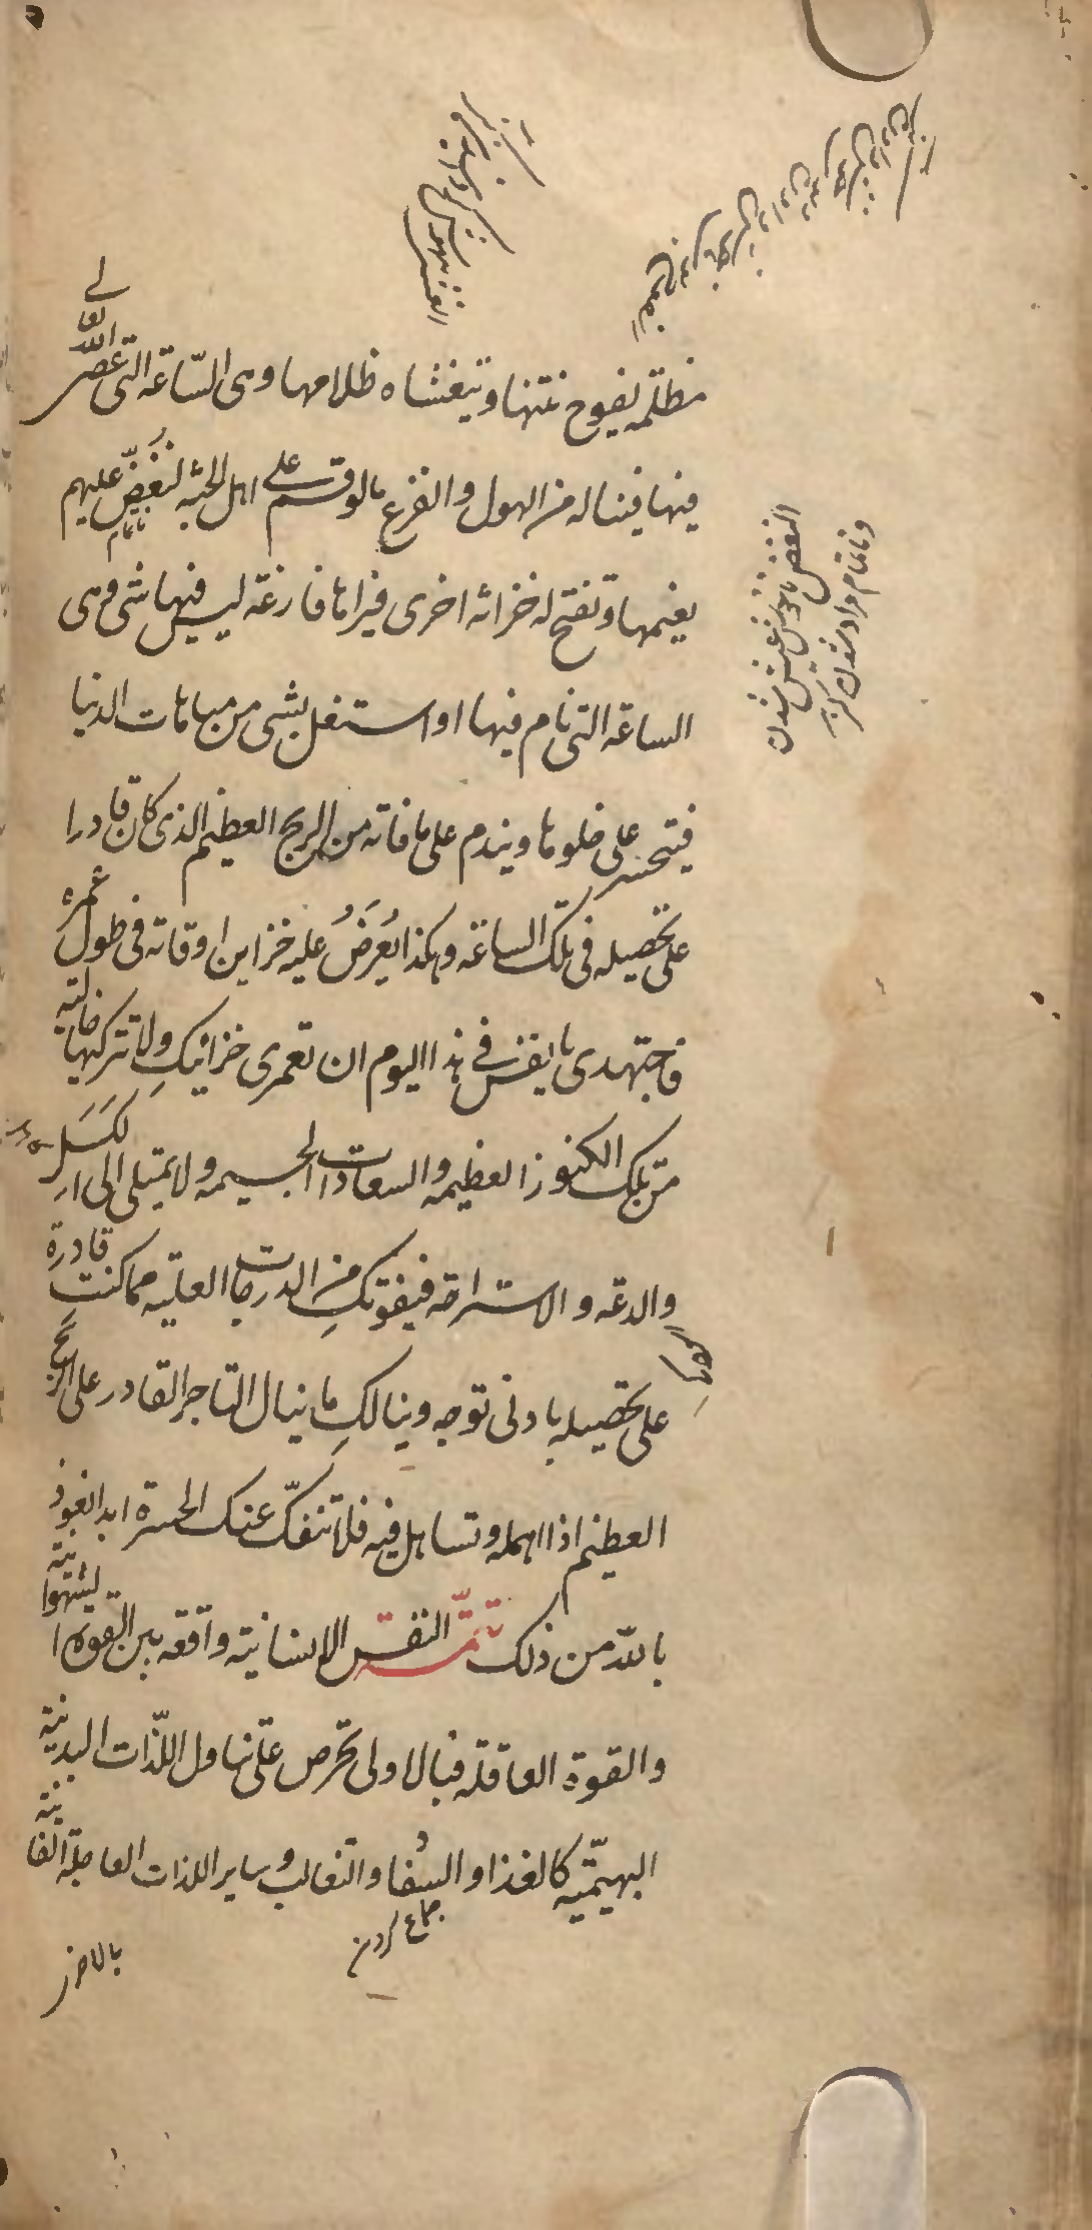 مظلمة يفوح نتنها و يتغشاه ظلامها وهى السّاعة التى عصى اللّٰه تعالى
فيها فيناله من الهول والفزع ما لو قسم على اهل الجنة لنغّض عليهم
نعيمها و تفتح له خزانة اخرى فيراها فارغة ليس فيها شى وهى
الساعة التى نام فيها او اشتغل بشى من مباحات الدنيا
فيتحسر على خلوها ويندم على ما فاته من الربح العظيم الذى كان قادرا
على تحصيله فى تلك الساعة وهكذا يُعرَضُ عليه خزاين اوقاته فى طول عمره
فاجتهدى يا نفس فى هذا اليوم ان تعمرى خزانيكِ ولا تتركيها خالية
من تلك الكنوز العظيمة والسعادات الجسيمة ولا تميلى الى الكَسَل
والدعة والاستراحة فيفوتكِ من الدرجات العليّة مما كنتِ قادرة
على تحصيله بادنى توجه وينالكِ ما ينال التاجر القادر على الربح
العظيم اذا اهمله وتساهل فيه فلا تنفكّ عنك الحسرة ابدا نعوذ
باللّه من ذلك تتمّة النفس الانسانية واقعة بين القوة الشهوانية
والقوة العاقلة فبالاولى تحرص على تناول اللّذات البدنية
البهيميّة كالغذا والسفا والتغالب وساير اللذات العاجلة الفانية
جماع كردن
بالاخر